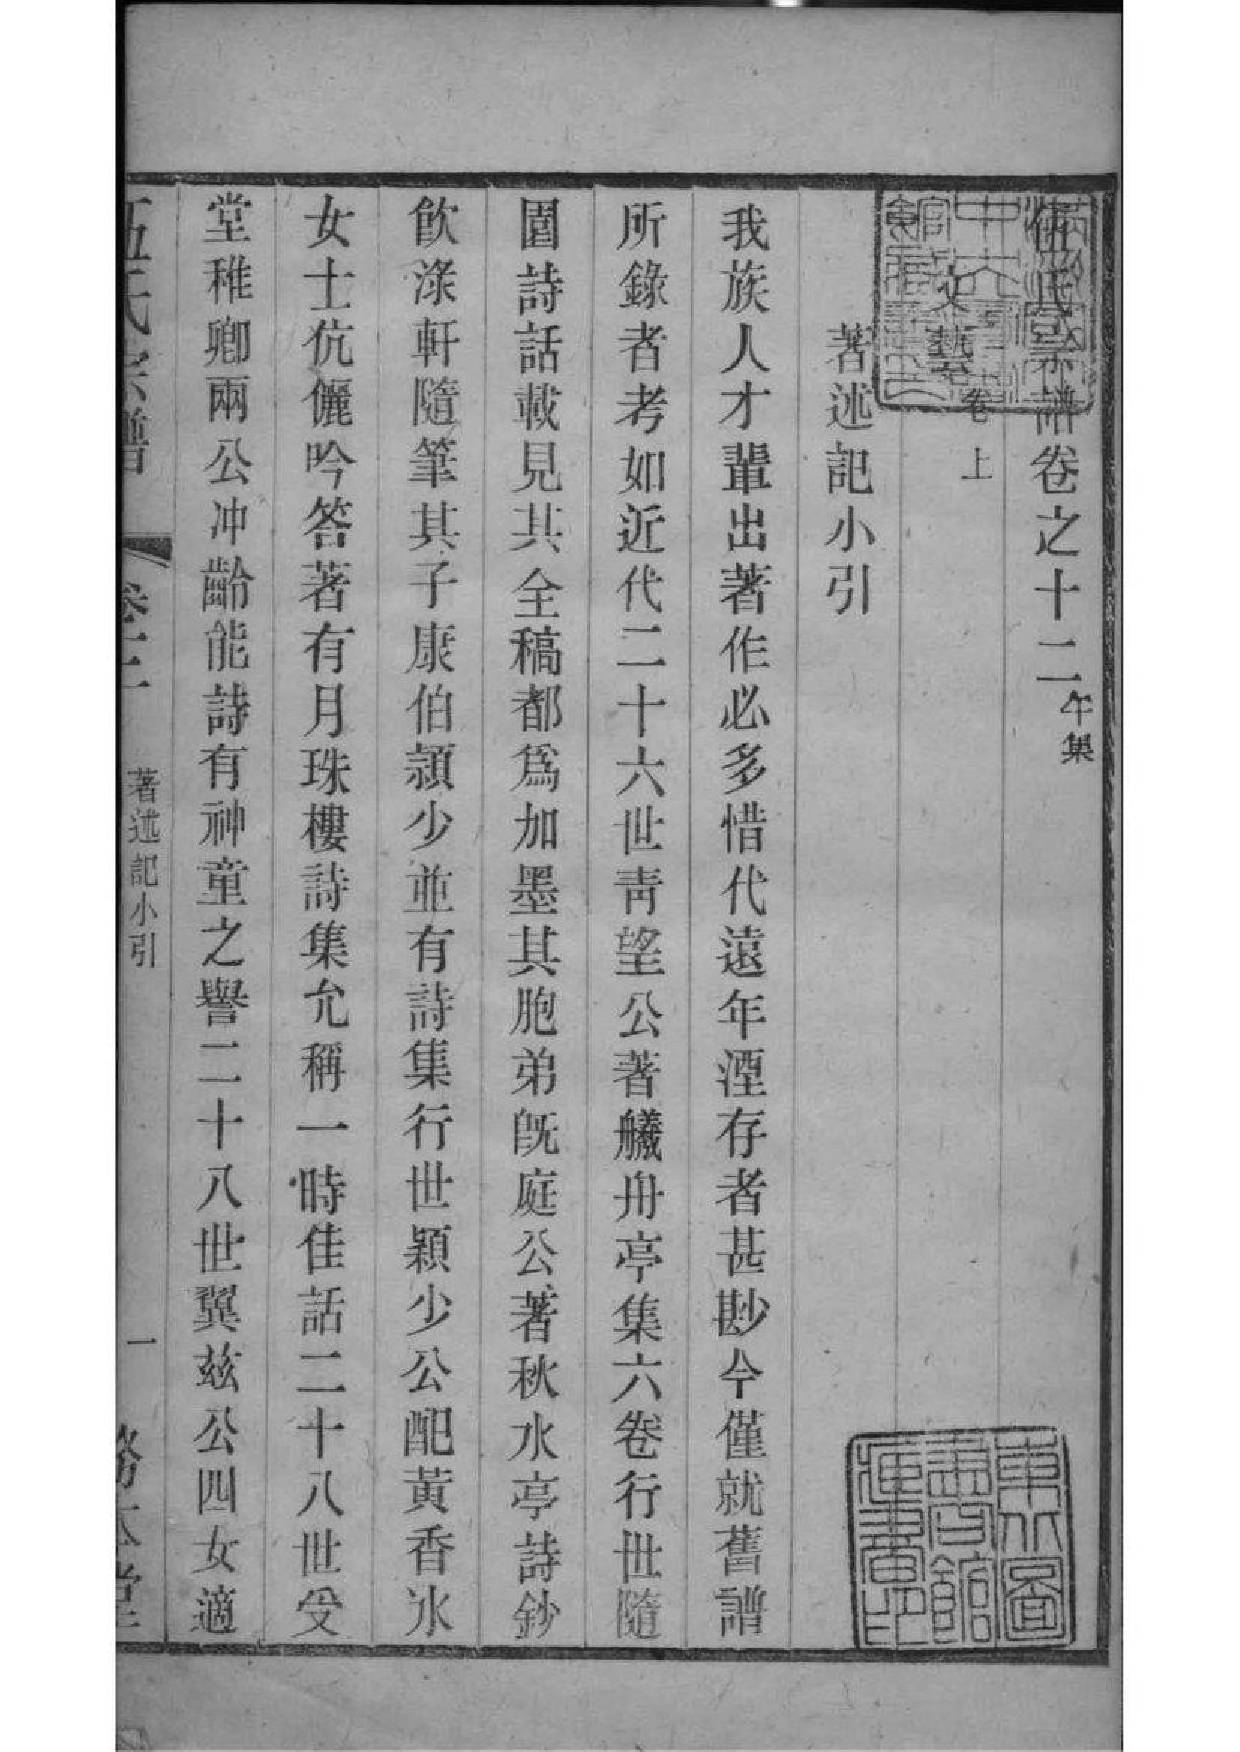 伍氏宗譜卷之十二午集
文藝卷上
著述記小引
我族人才輩出著作必多惜代遠年湮存者甚尠今僅就舊譜
所錄者考如近代二十六世靑望公著艤舟亭集六卷行世隨
園詩話載見其全稿都爲加墨其胞弟旣庭公著秋水亭詩鈔
飮淥軒隨筆其子康伯潁少並有詩集行世穎少公配黃香冰
女士伉儷吟答著有月珠樓詩集允稱一時佳話二十八世受
堂稚卿兩公冲齡能詩有神童之譽二十八世翼兹公四女適
伍氏宗譜
卷十二
著述記小引
一
務本堂